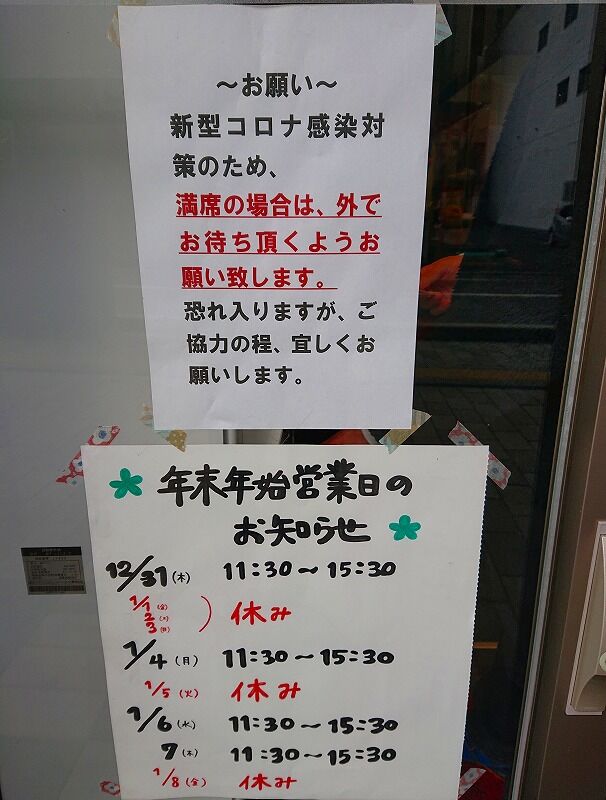 ～お願い～
新型コロナ感染対
策のため、
満席の場合は、外で
お待ち頂くようお
願い致します。
恐れ入りますが、ご
協力の程、宜しくお
願いします。
年末年始営業日の
お知らせ
12/31(木) 11:30～15:30
1/1(金)
2(土) ) 休み
3(日)
1/4(月) 11:30～15:30
1/5(火) 休み
1/6(水) 11:30～15:30
7(木) 11:30～15:30
1/8(金) 休み